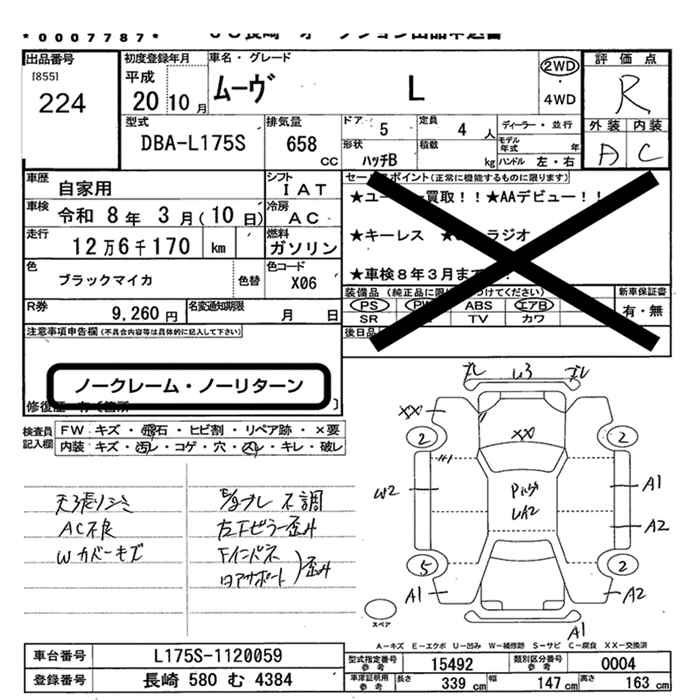 *0007787*
出品番号
[855]
224
初度登録年月
平成
20 10 月
車名・グレード
ムーヴ L
2WD
・
4WD
評価点
R
外装 内装
A C
型式
DBA-L175S
排気量
658
CC
ドア 5
定員 4 人
ディーラー・並行
モデル年式 年
形状
ハッチB
積載 kg
ハンドル 左・右
車歴
自家用
シフト
IAT
車検 令和 8年 3月(10日)
冷房
AC
走行 12万6千170 km
燃料
ガソリン
色
ブラックマイカ
色替
色コード
X06
R券 9,260 円
名変通知期限
月 日
セールスポイント(正常に機能するものに限ります)
★ユーザー買取!!★AAデビュー!!
★キーレス ★ ラジオ
★車検8年3月まで!!
装備品
PS PW ABS エアB
SR TV カワ
新車保証書
有・無
後日品
注意事項申告欄(不具合内容等は具体的に記入して下さい)
ノークレーム・ノーリターン
修復歴 有〔箇所 〕
検査員記入欄
FW キズ・飛石・ヒビ割・リペア跡・×要
内装 キズ・汚レ・コゲ・穴・スレ・キレ・破レ
天張リシミ
AC不良
Wカバーキズ
不調
歪み
Fインパネ
歪み
XX
2
2
W2
XX
A1
A2
5
2
A1
A2
A1
スペア
A-キズ E-エクボ U-凹み W-補修跡 S-サビ C-腐食 XX-交換済
車台番号 L175S-1120059
登録番号 長崎 580 む 4384
型式指定番号 参考 15492
類別区分番号 参考 0004
車庫証明用 参考 長さ 339 cm 幅 147 cm 高さ 163 cm